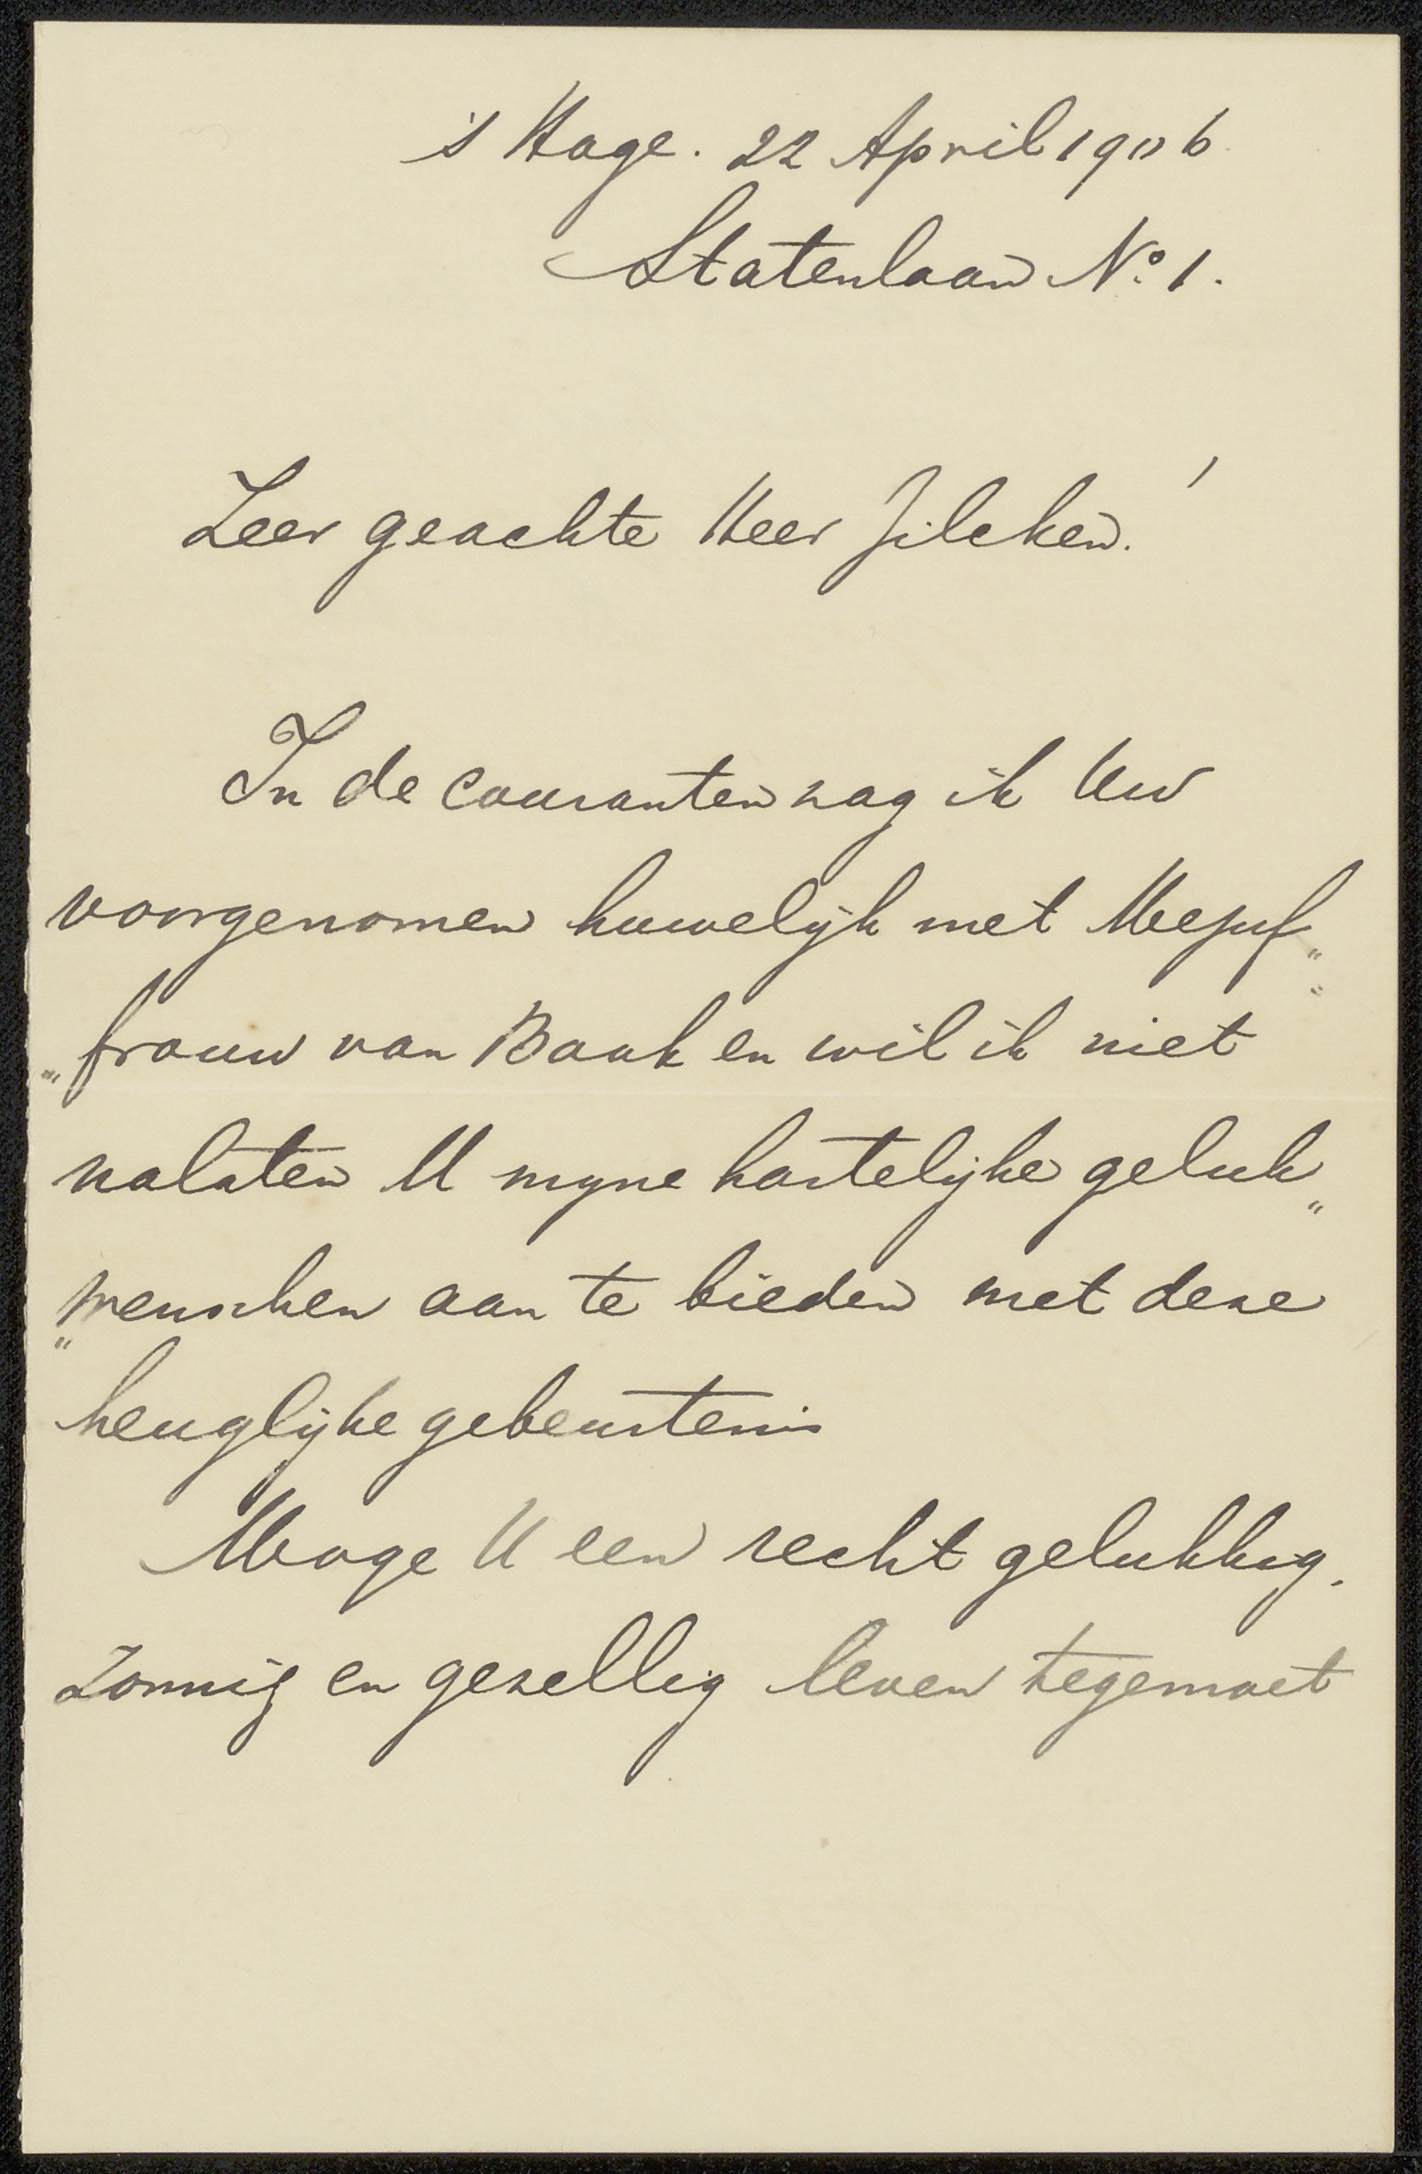 's Hage. 22 April 1906
Statenlaan No. 1.
Zeer geachte Heer Zilcken!
In de couranten zag ik Uw
voorgenomen huwelijk met Mejuf„
„frouw van Baak en wil ik niet
nalaten U myne hartelijke geluk„
„wenschen aan te bieden met deze
heuglijke gebeurtenis
Moge U een recht gelukkig,
zonnig en gezellig leven tegemoet